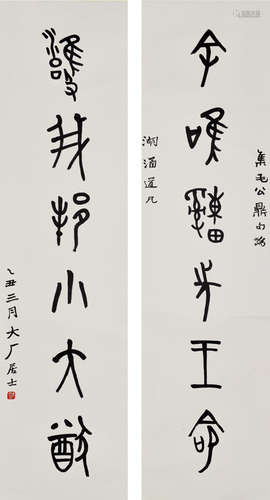 集毛公鼎
今唯先王命
道兄
雝我邦小大猷
乙丑三月大厂居士